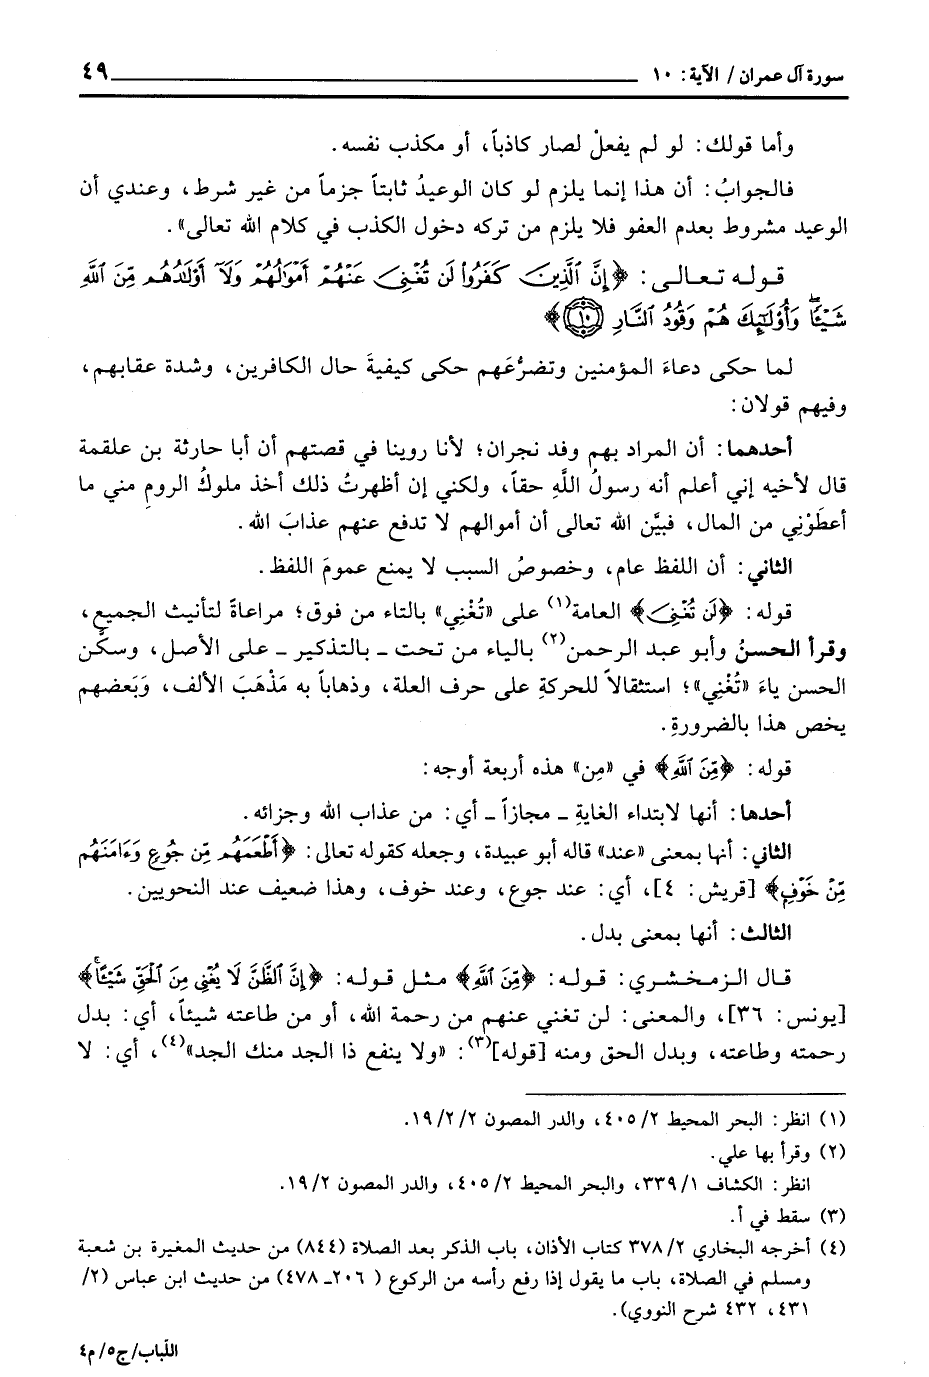 سورة آل عمران / الآية: ١٠ ٤٩
وأما قولك: لو لم يفعلْ لصار كاذباً، أو مكذب نفسه.
فالجوابُ: أن هذا إنما يلزم لو كان الوعيدُ ثابتاً جزماً من غير شرط، وعندي أن
الوعيد مشروط بعدم العفو فلا يلزم من تركه دخول الكذب في كلام الله تعالى».
قوله تعالى: ﴿إِنَّ ٱلَّذِينَ كَفَرُوا۟ لَن تُغْنِىَ عَنْهُمْ أَمْوَٰلُهُمْ وَلَآ أَوْلَٰدُهُم مِّنَ ٱللَّهِ
شَيْـًٔا ۖ وَأُو۟لَٰٓئِكَ هُمْ وَقُودُ ٱلنَّارِ ١٠﴾
لما حكى دعاءَ المؤمنين وتضرُّعَهم حكى كيفيةَ حال الكافرين، وشدة عقابهم،
وفيهم قولان:
أحدهما: أن المراد بهم وفد نجران؛ لأنا روينا في قصتهم أن أبا حارثة بن علقمة
قال لأخيه إني أعلم أنه رسولُ اللَّهِ حقاً، ولكني إن أظهرتُ ذلك أخذ ملوكُ الرومِ مني ما
أعطَوْنِي من المال، فبيَّن الله تعالى أن أموالهم لا تدفع عنهم عذابَ الله.
الثاني: أن اللفظ عام، وخصوصُ السبب لا يمنع عمومَ اللفظ.
قوله: ﴿لَن تُغْنِىَ﴾ العامة(١) على «تُغْنِي» بالتاء من فوق؛ مراعاةً لتأنيث الجميع،
وقرأ الحسنُ وأبو عبد الرحمن(٢) بالياء من تحت ـ بالتذكير ـ على الأصل، وسكَّن
الحسن ياءَ «تُغْنِي»؛ استثقالاً للحركةِ على حرف العلة، وذهاباً به مَذْهَبَ الألف، وَبَعضهم
يخص هذا بالضرورةِ.
قوله: ﴿مِّنَ ٱللَّهِ﴾ في «مِن» هذه أربعة أوجه:
أحدها: أنها لابتداء الغايةِ ـ مجازاً ـ أي: من عذاب الله وجزائه.
الثاني: أنها بمعنى «عند» قاله أبو عبيدة، وجعله كقوله تعالى: ﴿أَطْعَمَهُم مِّن جُوعٍ وَءَامَنَهُم
مِّنْ خَوْفٍ﴾ [قريش: ٤]، أي: عند جوع، وعند خوف، وهذا ضعيف عند النحويين.
الثالث: أنها بمعنى بدل.
قال الزمخشري: قوله: ﴿مِّنَ ٱللَّهِ﴾ مثل قوله: ﴿إِنَّ ٱلظَّنَّ لَا يُغْنِى مِنَ ٱلْحَقِّ شَيْـًٔا ۚ﴾
[يونس: ٣٦]، والمعنى: لن تغني عنهم من رحمة الله، أو من طاعته شيئاً، أي: بدل
رحمته وطاعته، وبدل الحق ومنه [قوله](٣): «ولا ينفع ذا الجد منك الجد»(٤)، أي: لا
(١) انظر: البحر المحيط ٤٠٥/٢، والدر المصون ١٩/٢/٢.
(٢) وقرأ بها علي.
انظر: الكشاف ٣٣٩/١، والبحر المحيط ٤٠٥/٢، والدر المصون ١٩/٢.
(٣) سقط في أ.
(٤) أخرجه البخاري ٣٧٨/٢ كتاب الأذان، باب الذكر بعد الصلاة (٨٤٤) من حديث المغيرة بن شعبة
ومسلم في الصلاة، باب ما يقول إذا رفع رأسه من الركوع ( ٢٠٦ـ ٤٧٨) من حديث ابن عباس (٢/
٤٣١، ٤٣٢ شرح النووي).
اللّباب/ج٥/م٤